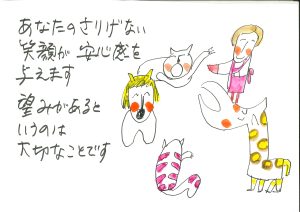 あなたのさりげない
笑顔が 安心感を
与えます
望みがあると
いうのは
大切なことです